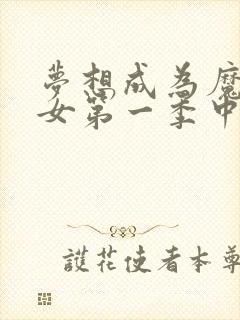 夢想成為魔
女第一季中
護花使者本尊